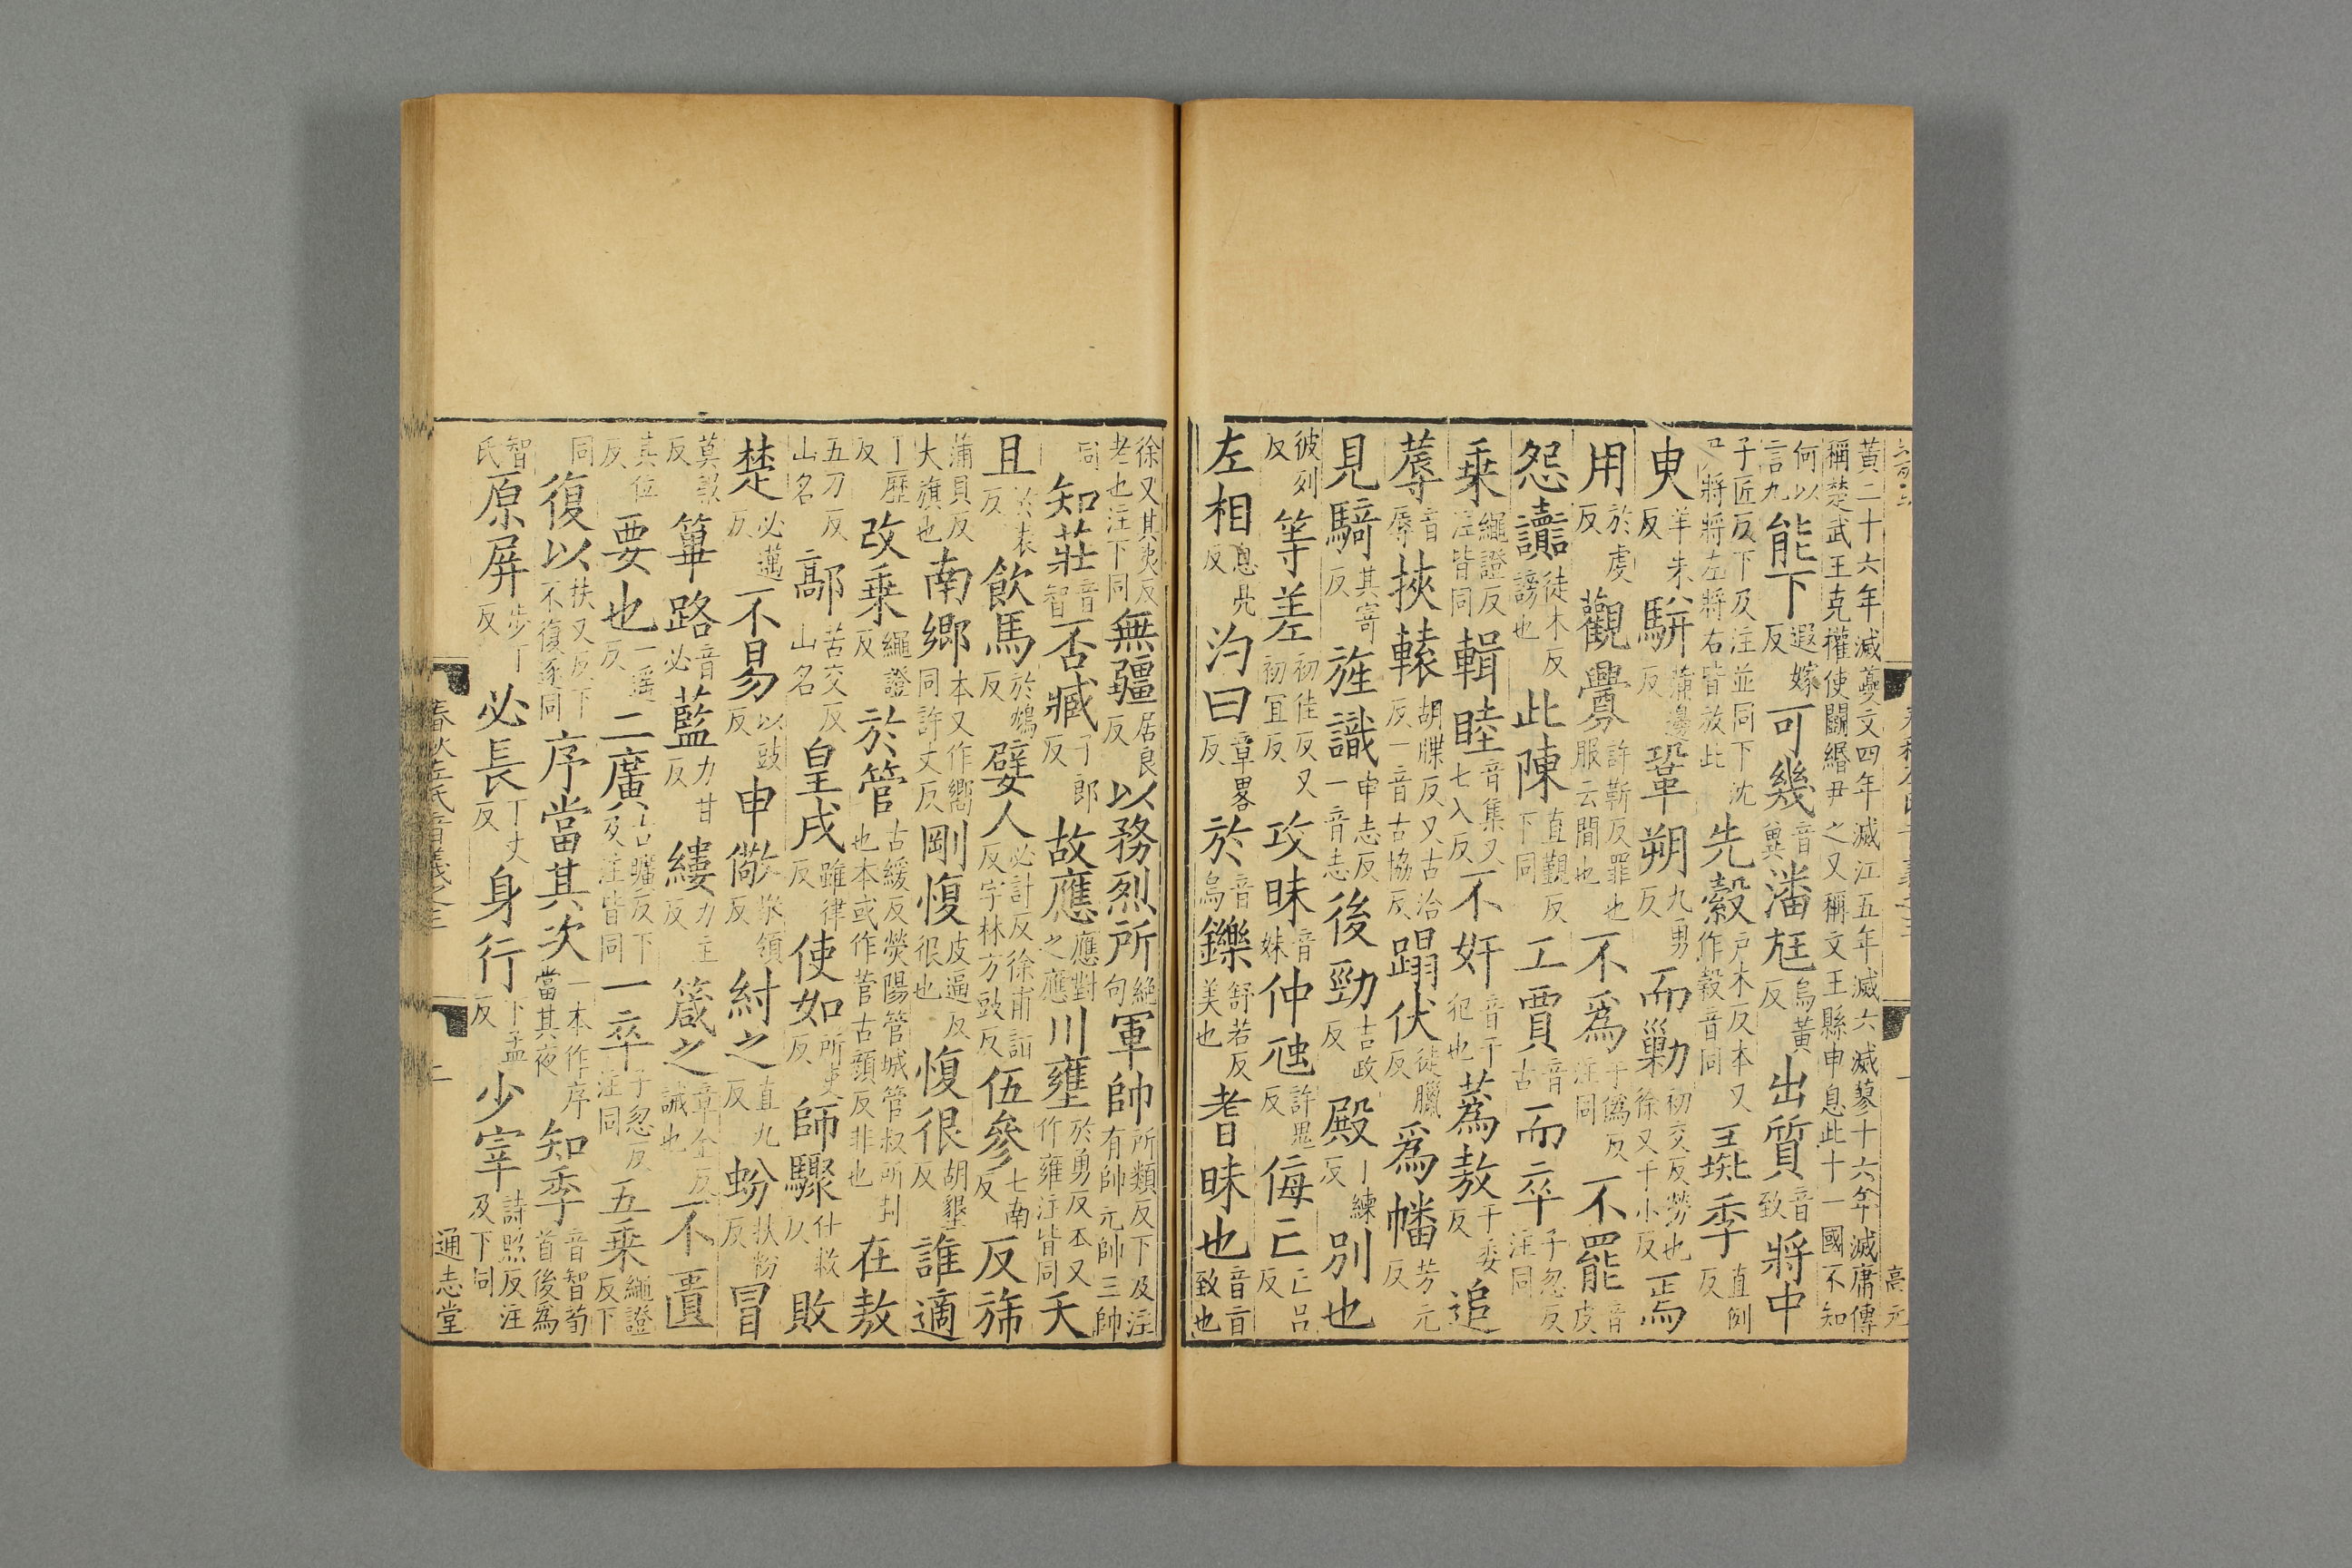 黃二十六年滅蔆文四年滅江五年滅六滅蓼十六年滅庸傳
稱楚武王克權使鬭緡尹之又稱文王縣申息此十一國不知
何以言九 能下遐嫁反 可幾音冀 潘尫烏黃反 出質音致 將中
子匠反下及注並同下沈尹將將左將右皆放此 先縠戶木反本又作穀音同 彘季直例反
臾羊朱反 駢蒲邊反 鞏朔九勇反 而勦初交反勞也徐又子小反 焉
用於虔反 觀釁許靳反罪也服云間也 不爲于僞反注同 不罷音皮
怨讟徒木反謗也 此陳直覲反下同 工賈音古 而卒子忽反注同
乗繩證反注皆同 輯睦音集又七入反 不奸音干犯也 蒍敖于委反 追
蓐音辱 挾轅胡牒反又古洽反一音古協反 蹋伏徒臘反 爲幡芳元反
見騎其寄反 旌識申志反一音志 後勁吉政反 殿丁練反 別也
彼列反 等差初佳反又初宜反 攻昧音妹 仲虺許鬼反 侮亡亡呂反
左相息亮反 汋曰章略反 於音烏 鑠舒若反美也 耆昧也音旨致也
徐又其夷反老也注下同 無疆居良反 以務烈所絶句 軍帥所類反下及注有帥元帥三帥
同 知莊音智 否臧子郎反 故應應對之應 川壅於勇反本又作雍注皆同 夭
且於表反 飲馬於鴆反 嬖人必計反徐甫詣反字林方豉反 伍參七南反 反斾
蒲貝反大旗也 南鄉本又作嚮同許丈反 剛愎皮逼反很也 愎很胡墾反 誰適
丁歷反 改乗繩證反 於管古緩反滎陽管城管叔所封也本或作菅古顔反非也 在敖
五刀反山名 鄗苦交反山名 皇戌雖律反 使如所吏反 師驟仕救反 以敗
楚必邁反 不易以豉反 申儆敬領反 紂之直九反 蚡扶粉反 冒
莫報反 篳路音必 藍力甘反 縷力主反 箴之章金反誡也 不匱
其位反 要也一遥反 二廣古曠反下及注皆同 一卒子忽反注同 五乗繩證反下
同 復以扶又反下不復逐同 序當其次一本作序當其夜 知季音智荀首後爲
智氏 原屏步丁反 必長丁丈反 身行下孟反 少宰詩照反注及下同
春秋左氏音義之三
二
通志堂